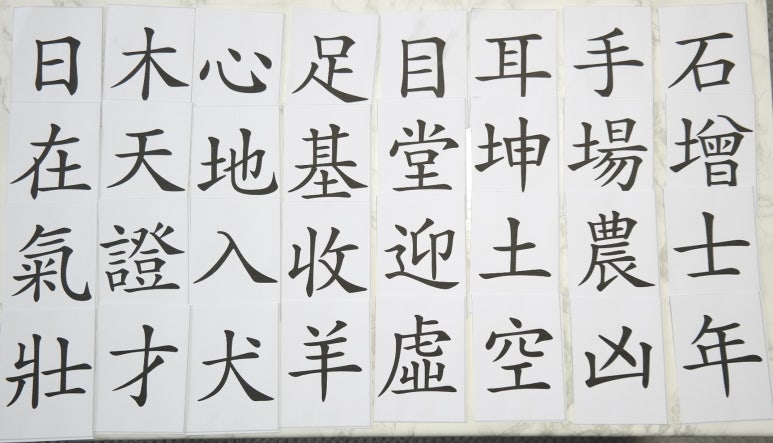 日木心足目耳手石
在天地基堂坤場增
氣證入收迎土農士
壯才犬羊虛空凶年